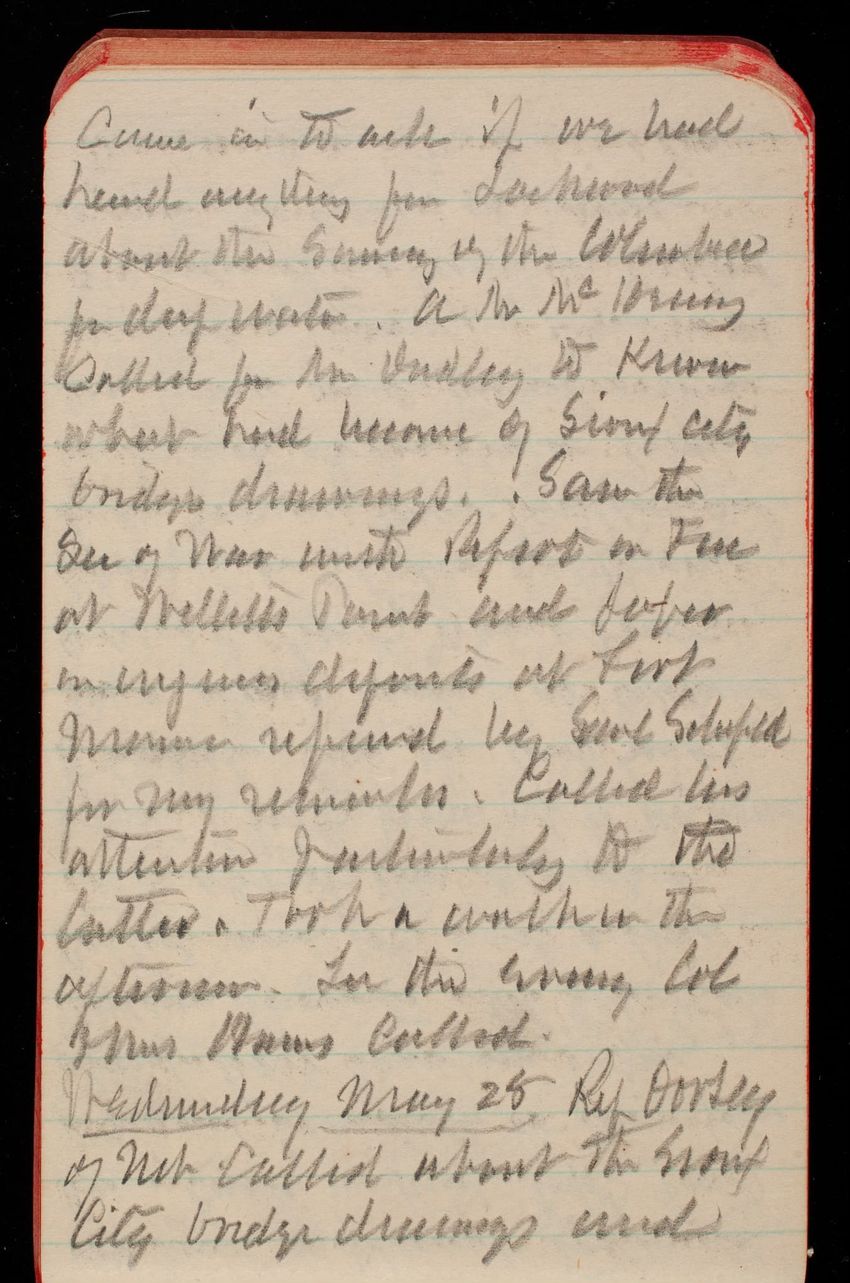 Came in to ask if we had
heard anything from Lockwood
about the Survey of the Columbia
for deep water. A Mr Mc
Called for Mr Dudley to Know
what had become of Sioux city
bridge drawings. . Saw the
Sec of War with Report on Fire
at Willetts Point and paper
on engineer deposits at Fort
Monroe referred by Genl Schofield
for my remarks. Called his
attention particularly to the
latter. Took a walk in the
afternoon. In the evening Col
& Mrs Called.
Wednesday May 25 Rep Dorsey
of Neb Called about the Sioux
City bridge drawings and